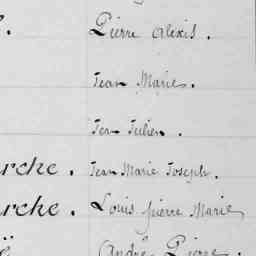 Pierre Alexis.
Jean Marie.
Jean Julien.
rche. Jean Marie Joseph.
rche. Louis pierre Marie
André Pierre.